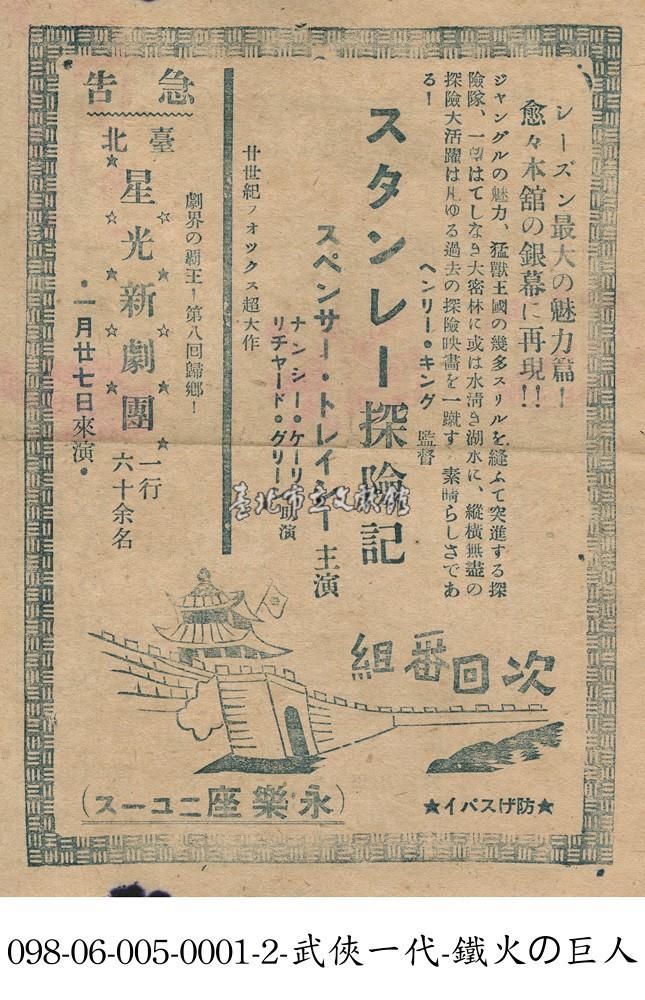 シーズン最大の魅力篇!
愈々本舘の銀幕に再現!!
ジャングルの魅力、猛獸王國の幾多スリルを縫ふて突進する探
險隊、一望はてしなき大密林に或は水清き湖水に、縱横無盡の
探險大活躍は凡ゆる過去の探險映畫を一蹴す、素晴らしさであ
る!
ヘンリー・キング 監督
スタンレー探險記
スペンサー・トレイシー 主演
ナンシー・ケーリ
リチャード・グリー 助演
廿世紀フォックス超大作
急告
劇界の覇王!第八回歸鄉!
臺北
☆星☆光☆新☆劇☆團☆
一行
六十余名
・一月廿七日來演・
次回番組
★防げスパイ★
(永樂座ニュース)
臺北市立文獻館
098-06-005-0001-2-武俠一代-鐵火の巨人